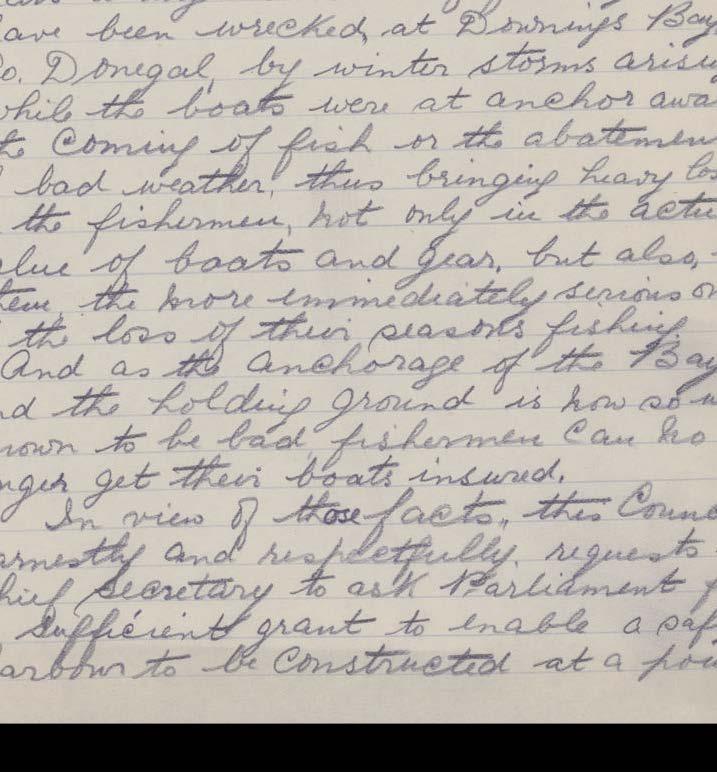 ave been wrecked, at Downings Bay
o. Donegal, by winter storms arisi
hile the boats were at anchor awa
the Coming of fish or the abatemen
bad weather, thus bringing heavy los
the fishermen, not only in the actu
alue of boats and gear, but also,
the more immediately serious on
the loss of their seasons fishing
And as the anchorage of the Bay
nd the holding ground is now so w
nown to be bad, fishermen Can no
nger get their boats insured.
In view of those facts, this Counc
arnestly and respectfully requests
hief Secretary to ask Parliament f
Sufficient grant to enable a saf
arbour to be Constructed at a poi